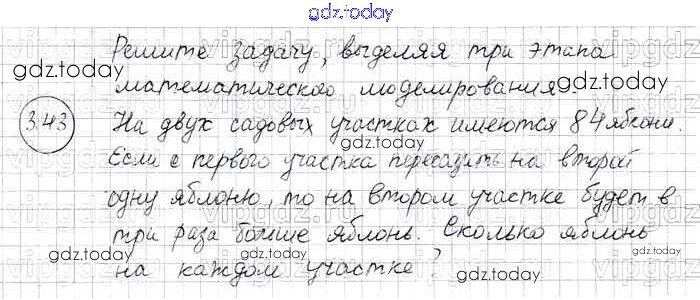 gdz.today
Решите задачу, выделяя три этапа
gdz.today
математического моделирования
gdz.today
3.43
На двух садовых участках имеются 84 яблони.
gdz.today
Если с первого участка пересадить на второй
одну яблоню, то на втором участке будет в
gdz.today
gdz.today
три раза больше яблонь. Сколько яблонь
gdz.today
gdz.today
на каждом участке?